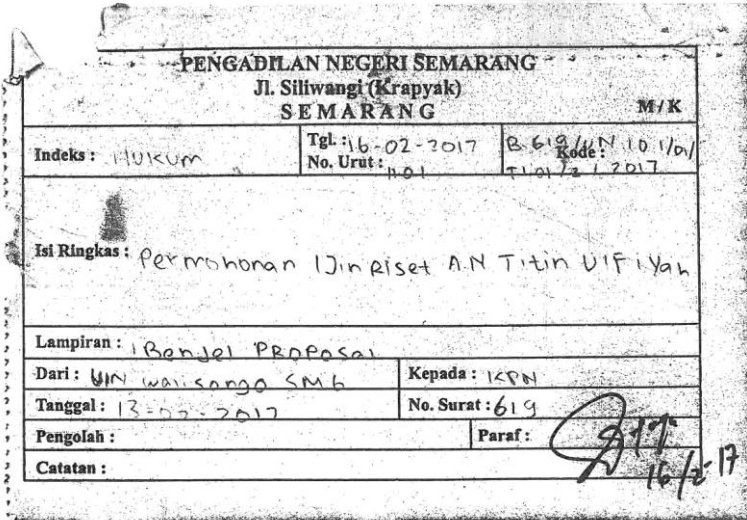 PENGADILAN NEGERI SEMARANG
Jl. Siliwangi (Krapyak)
SEMARANG
M/K
Indeks : HUKUM
Tgl. : 16-02-2017
No. Urut : 1101
Kode :
B.619/UN 10.1/D1/
2017
Isi Ringkas : Permohonan IJin Riset A.N Titin Ulfiyah
Lampiran : 1 Bendel PROPOSAL
Dari : UIN walisongo SMG
Kepada : KPN
Tanggal : 13-02-2017
No. Surat : 619
Pengolah :
Paraf :
16/2-17
Catatan :